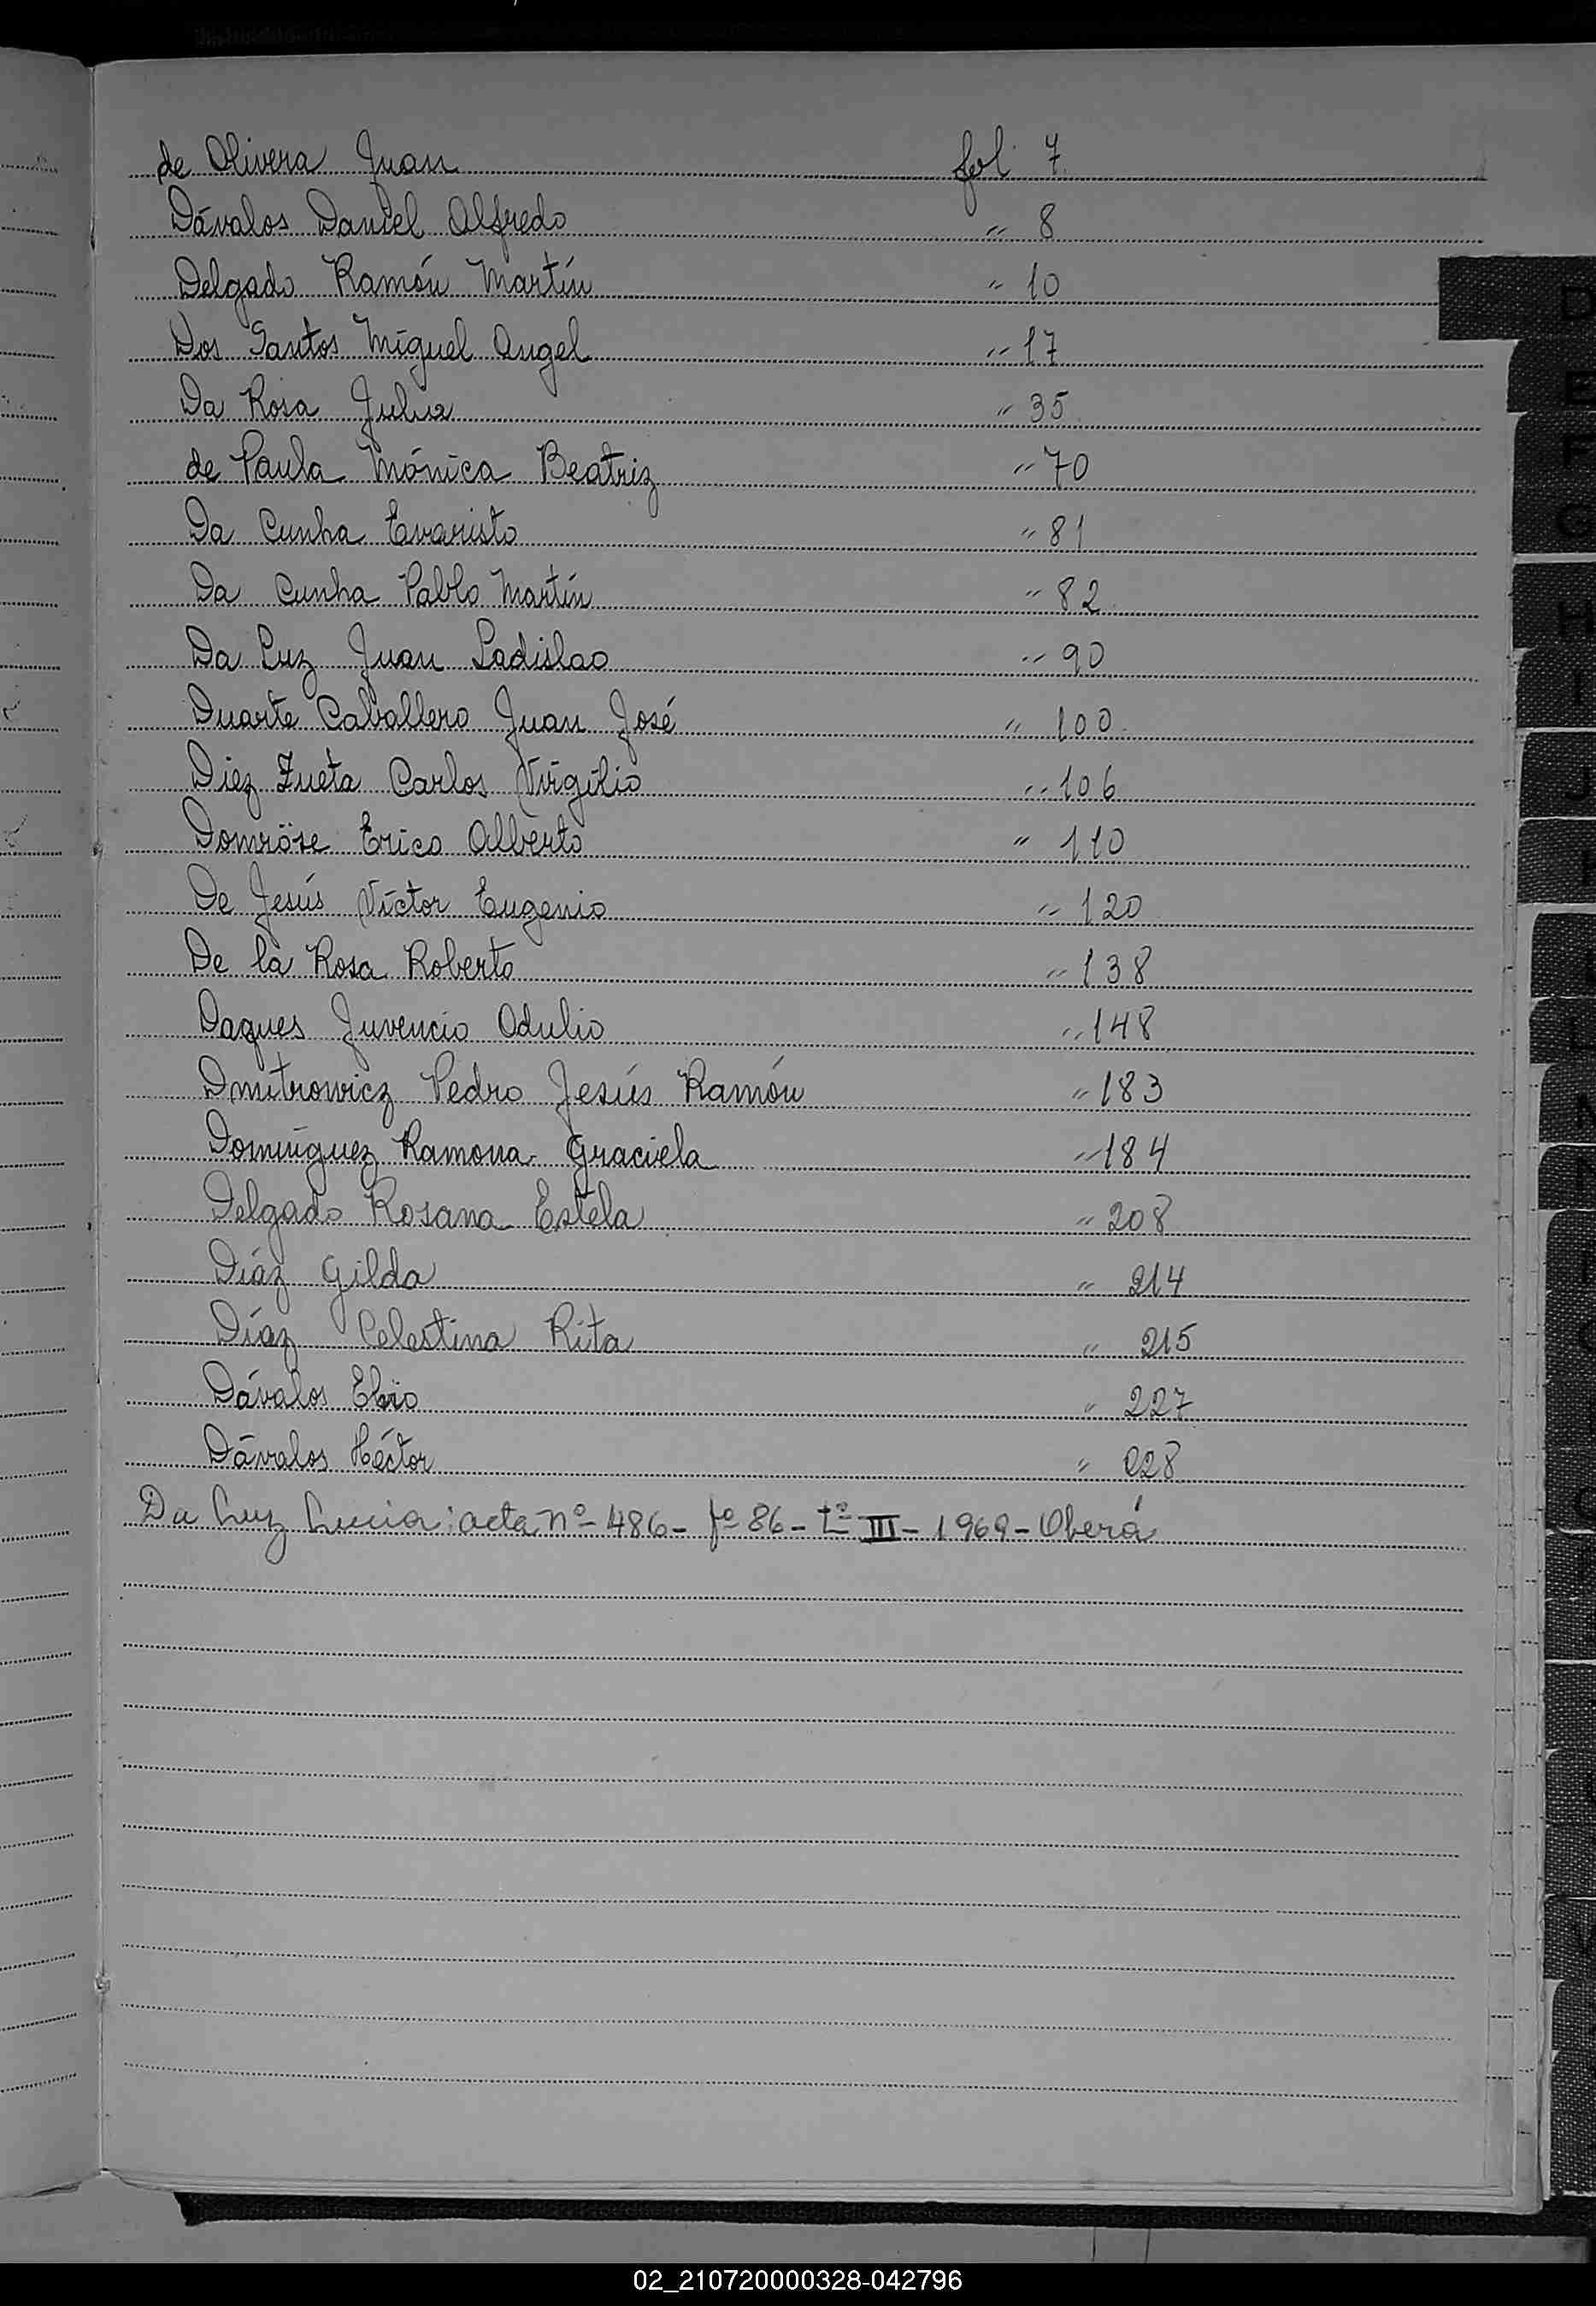 de Olivera Juan fol. 7
Dávalos Daniel Alfredo " 8
Delgado Ramón Martín " 10
Dos Santos Miguel Angel " 17
Da Rosa Julia " 35
de Paula Mónica Beatriz " 70
Da Cunha Evaristo " 81
Da Cunha Pablo Martín " 82
Da Luz Juan Ladislao " 90
Duarte Caballero Juan José " 100
Diez Zueta Carlos Virgilio " 106
Domröse Erico Alberto " 110
De Jesús Víctor Eugenio " 120
De la Rosa Roberto " 138
Daques Juvencio Odulio " 148
Dmitrowicz Pedro Jesús Ramón " 183
Domínguez Ramona Graciela " 184
Delgado Rosana Estela " 208
Diáz Gilda " 214
Díaz Celestina Rita " 215
Dávalos " 227
Dávalos Héctor " 228
Da Luz Lucia: acta nº 486 - fº 86 - tº III - 1969 - Oberá
D
E
F
G
H
I
J
02_210720000328-042796